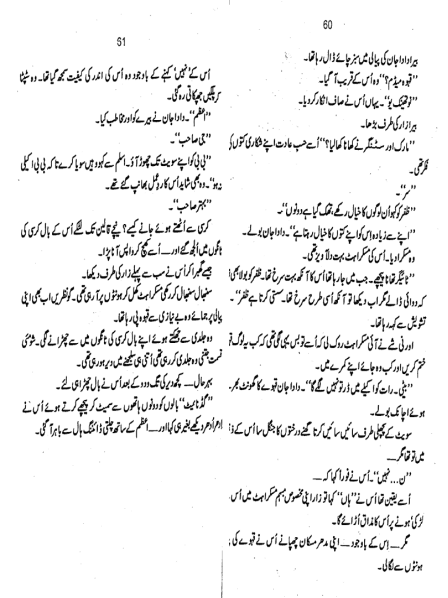 60
بیرا دادا جان کی پیالی میں سبز چائے ڈال رہا تھا۔
”قہوہ میڈم؟“ وہ اُس کے قریب آ گیا۔
”نو تھینک یو“۔ یہاں اُس نے صاف انکار کر دیا۔
بیرا زار کی طرف بڑھا۔
”مارک اور سٹنگر نے کھانا کھا لیا؟“ اُسے حسب عادت اپنے شکاری کتوں کی
فکر تھی۔
”سر“۔
”ظفر کو کہو اُن لوگوں کا خیال رکھے، تھک گیا ہے دونوں“۔
”اپنے سے زیادہ اِس کو اپنے کتوں کا خیال رہتا ہے“۔ دادا جان بولے۔
وہ مسکرا دیا۔ اُس کی مسکراہٹ بہت دلآویز تھی۔
”ٹائیگر تھا پیچھے۔ جب میں جا رہا تھا اُس کا آنکھ بہت سرخ تھا۔ ظفر کو بولا بھی
کہ دوائی ڈالے مگر اب دیکھا تو آنکھ اُسی طرح سرخ تھا۔ سستی کرتا ہے ظفر“۔
تشویش سے کہہ رہا تھا۔
اور نی شے نے آئی مسکراہٹ روک لی۔ اُسے تو بس یہی لگی تھی کہ کب یہ لوگ قہوہ
ختم کریں اور کب وہ جائے اپنے کمرے میں۔
”بیٹی۔ رات کو اکیلے میں ڈر تو نہیں لگے گا“۔ دادا جان قہوے کا گھونٹ بھرتے
ہوئے اچانک بولے۔
سویٹ کے پچھلی طرف سائیں سائیں کرتا گھنے درختوں کا جنگل سا اُس کے ذہن
میں تو تھا مگر۔۔۔۔
”ن۔۔۔۔ نہیں“۔ اُس نے فوراً کہا کہ۔۔۔۔
اُسے یقین تھا اُس نے ”ہاں“ کہا تو زار اپنی مخصوص مبہم مسکراہٹ میں اُس کے
لڑکی ہونے پر اُس کا مذاق اُڑائے گا۔
مگر۔۔۔۔ اِس کے باوجود۔۔۔۔ اپنی مدھر مسکان چھپانے اُس نے قہوے کی پیالی
ہونٹوں سے لگا لی۔
61
اُس کے ”نہیں“ کہنے کے باوجود وہ اُس کی اندر کی کیفیت سمجھ گیا تھا۔ وہ سٹپٹا
کر پلکیں جھپکاتی رہ گئی۔
”اعظم“۔ دادا جان نے بیرے کو اور مخاطب کیا۔
”جی صاحب“۔
”بی بی کو اپنے سویٹ تک چھوڑ آؤ۔ اسلم سے کہو وہیں سویا کرے تا کہ بی بی اکیلی
نہ ہو“۔ وہ بھی شاید اُس کا ردِ عمل بھانپ گئے تھے۔
”بہتر صاحب“۔
کرسی سے اُٹھتے ہوئے جانے کیسے؟ نیچے قالین تک لٹکے اُس کے بال کرسی کی
ٹانگوں میں اُلجھ گئے اور۔۔۔۔ اُسے کھچ کر واپس آنا پڑا۔
جیسے گھبرا کر اُس نے سب سے پہلے زار کی طرف دیکھا۔
سنبھال سنبھال کر رکھی مسکراہٹ کھل کر ہونٹوں پر آ رہی تھی۔ گو نظریں اب بھی اپنی
پیالی پر جمائے وہ بے نیازی سے قہوہ پی رہا تھا۔
وہ جلدی سے جھکتے ہوئے اپنے بال کرسی کی ٹانگوں میں سے چھڑانے لگی۔ شومئی
قسمت جتنی وہ جلدی کر رہی تھی اُتنی ہی سلجھنے میں دیر ہو رہی تھی۔
بہر حال۔۔۔۔ کچھ دیر کی تگ و دو کے بعد اُس نے بال چھڑا ہی لئے۔
”گڈ نائیٹ“ بالوں کو دونوں ہاتھوں سے سمیٹ کر پیچھے کرتے ہوئے اُس نے
اِدھر اُدھر دیکھے بغیر ہی کہا اور۔۔۔۔ اعظم کے ساتھ چلتی ڈائننگ ہال سے باہر آ گئی۔